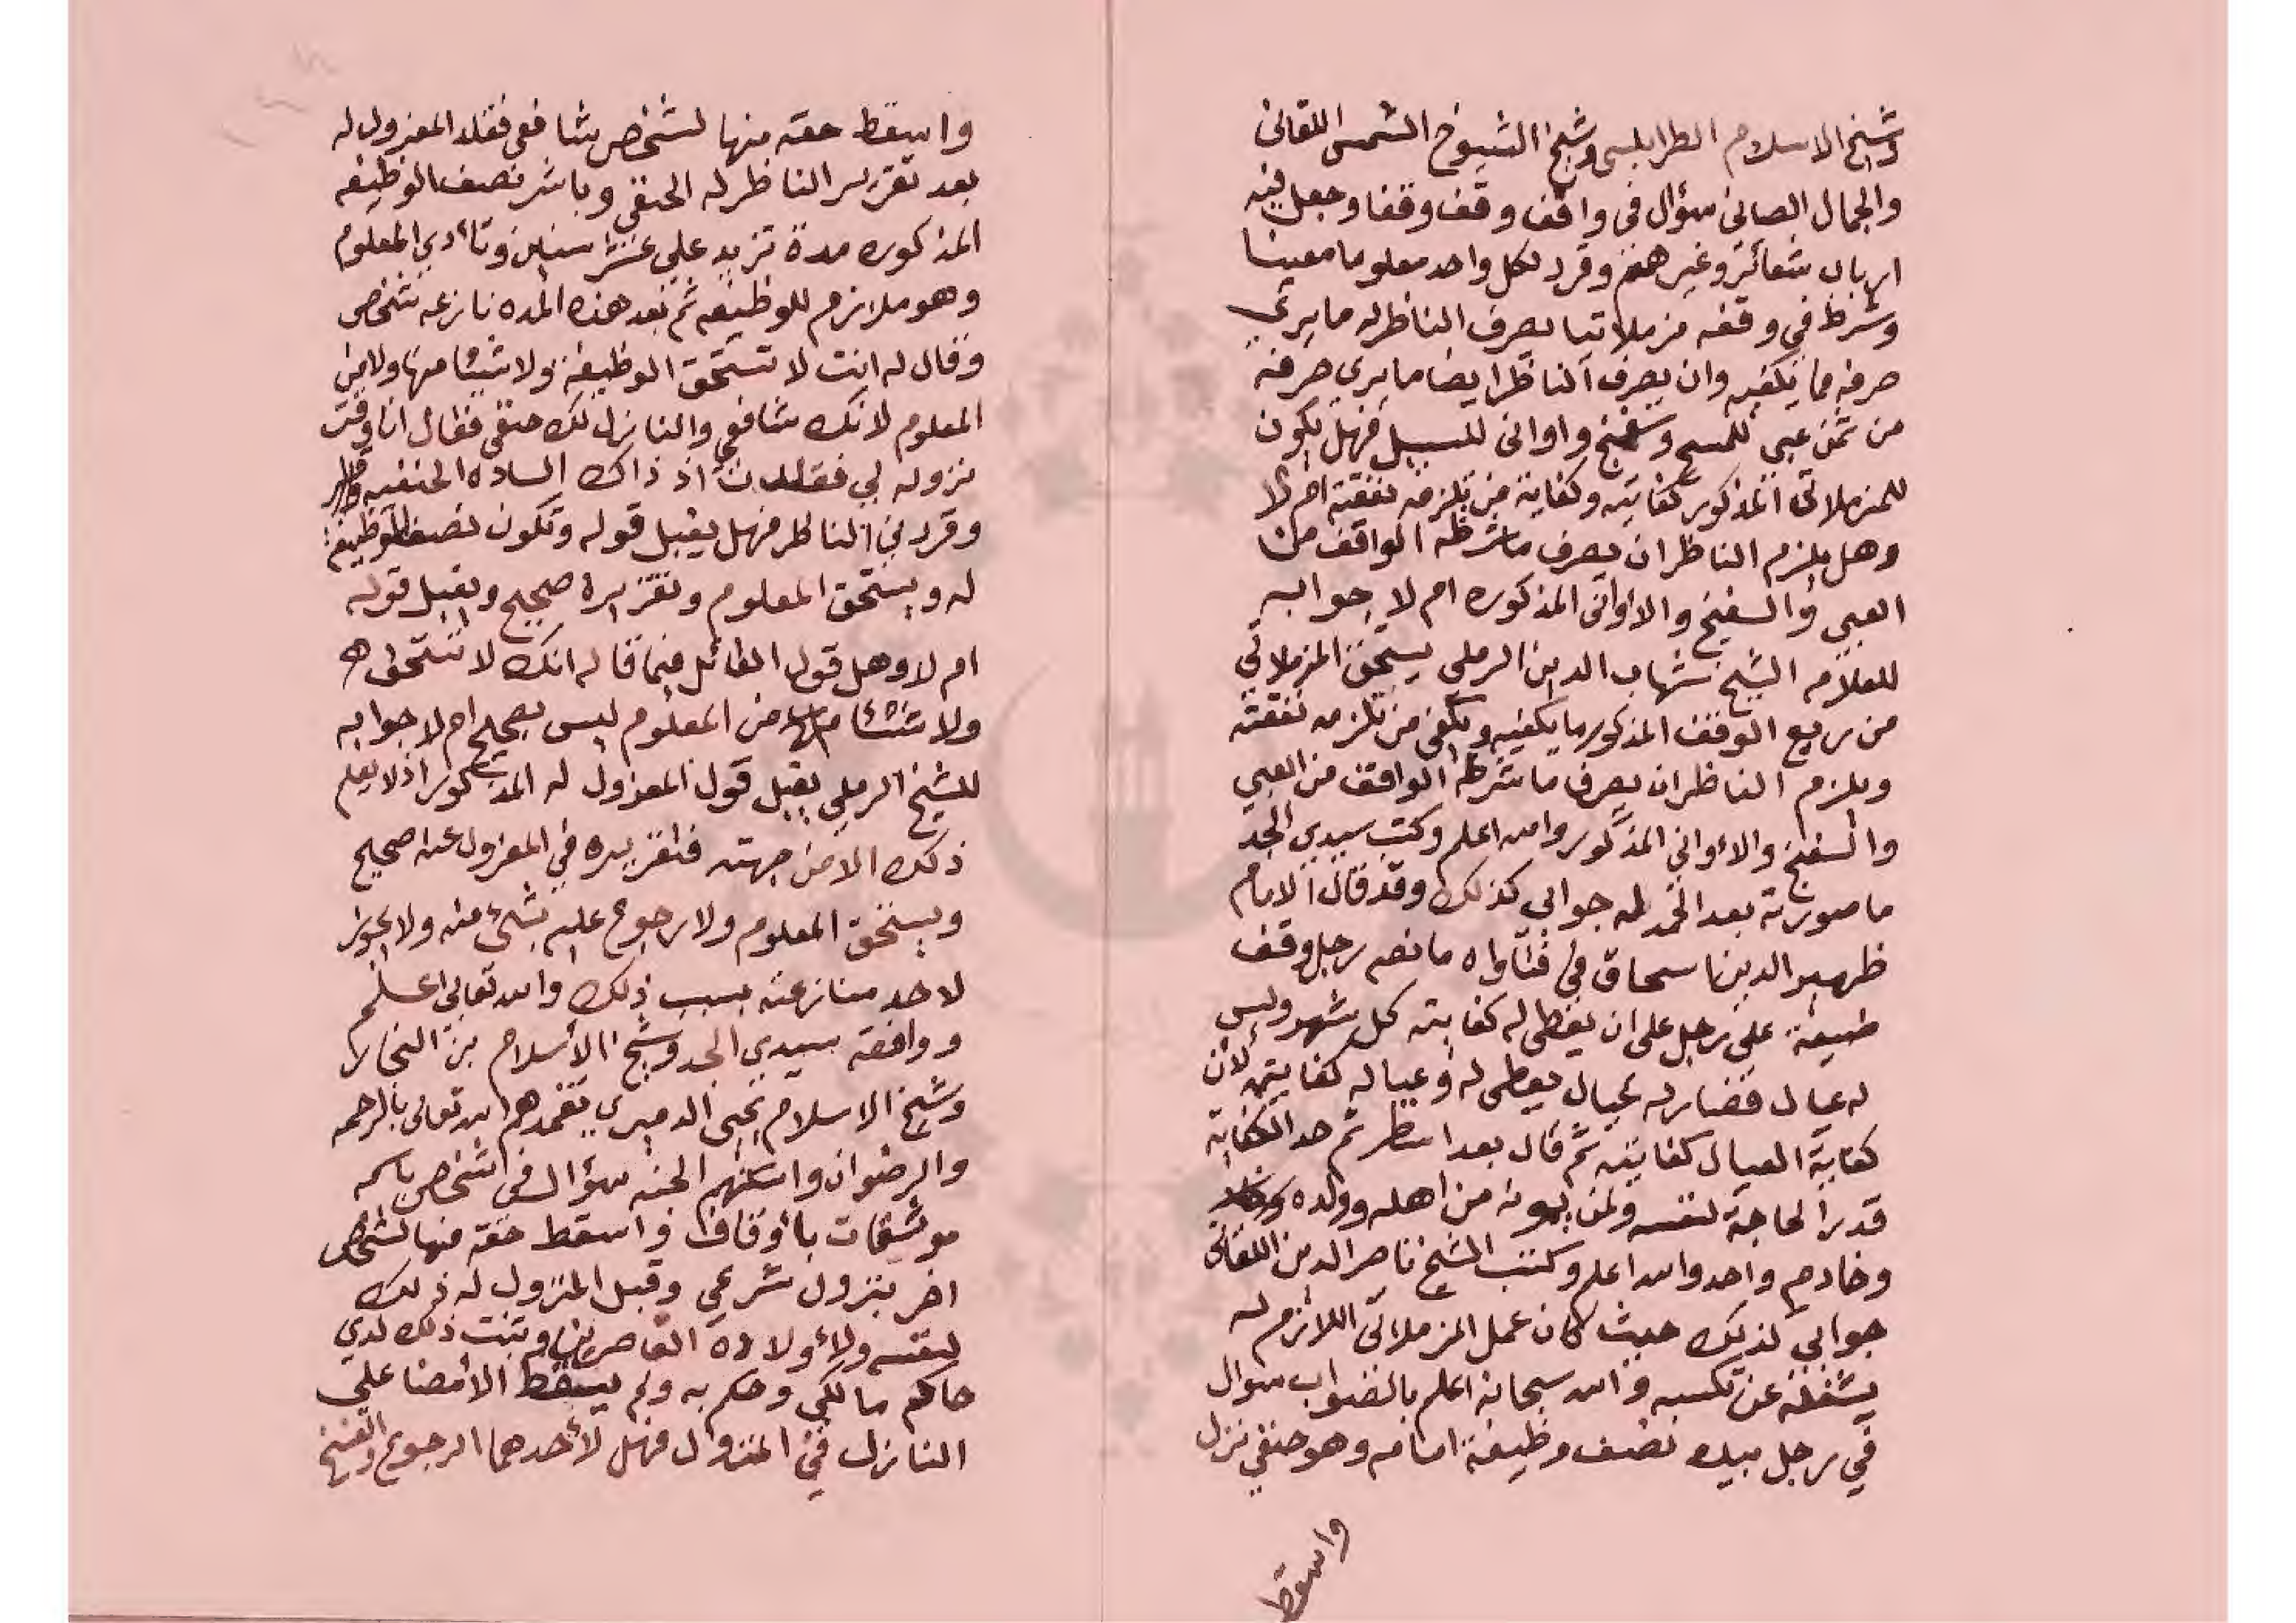 وشيخ الاسلام الطرابلسي وشيخ الشيوخ الشمس اللقاني
والجمال الصاني سؤال في واقف وقف وقفا وجعل فيه
ارباب شعائر وغيرهم وقرر لكل واحد معلوما معينا
وشرط في وقفه مزملاتيا يصرف الناظر له ما يري
صرفه مما يكفيه وان يصرف الناظر ايضا ما يري صرفه
من ثمن عبي للمسح وسفنج واواني للسبيل فهل يكون
للمزملاتي المذكور كفايته وكفاية من تلزمه نفقته ام لا
وهل يلزم الناظر ان يصرف ما شرطه الواقف من
العبي والسفنج والاواني المذكوره ام لا جوابه
للعلامه الشيخ شهاب الدين الرملي يستحق المزملاتي
من ريع الوقف المذكور ما يكفيه ويكفي من تلزمه نفقته
ويلزم الناظر ان يصرف ما شرطه الواقف من العبي
والسفنج والاواني المذكور والله اعلم وكتب سيدي الجد
ما صورته بعد الحمد لله جوابي كذلك وقد قال الامام
ظهير الدين اسحاق في فتاواه ما نصه رجل وقف
ضيعة على رجل على ان يعطى له كفايته كل شهر وليس
له عيال فصار له عيال يعطى له وعياله كفايتهم لان
كفاية العيال كفايته ثم قال بعد اسطر ثم حد الكفاية
قدر الحاجة لنفسه ولمن يمونه من اهله وولده
وخادم واحد والله اعلم وكتب الشيخ ناصر الدين اللقاني
جوابي كذلك حيث كان عمل المزملاتي اللازم له
يشغله عن تكسبه والله سبحانه اعلم بالصواب سوال
في رجل بيده نصف وظيفة امامه وهو حنفي نزل
واسقط
واسقط حقه منها لشخص شافعي فقلد المنزول له
بعد تقرير الناظر له الحنفي وباشر نصف الوظيفه
المذكوره مدة تزيد علي عشر سنين وتادي المعلوم
وهو ملازم للوظيفه ثم بعد هذه المده نازعه شخص
وقال له انت لا تستحق الوظيفة ولا شيئا منها ولا من
المعلوم لانك شافعي والنازل لك حنفي فقال انا وقت
نزوله لي قلدت اذ ذاك الساده الحنفيه
وقررني الناظر فهل يقبل قوله وتكون نصف الوظيفة
له ويستحق المعلوم وتقريره صحيح ويقبل قوله
ام لا وهل قول القائل فيما قاله انك لا تستحق
ولا شيئا منها من المعلوم ليس بصحيح ام لا جوابه
للشيخ الرملي يقبل قول المنزول له المذكور اذ لا يعلم
ذلك الا من جهته فتقريره في المنزول عنه صحيح
ويستحق المعلوم ولا رجوع عليه بشيء منه ولا يجوز
لاحد منازعته بسبب ذلك والله تعالى اعلم
ووافقه سيدي الجد وشيخ الاسلام بن النجار
وشيخ الاسلام يحيى الدميري تغمدهم الله تعالى بالرحمه
والرضوان واسكنهم الجنه سؤال في شخص باسمه
مرتبات باوقاف واسقط حقه منها لشخص
اخر بنزول شرعي وقبل المنزول له ذلك
لنفسه ولاولاده القاصرين وثبت ذلك لدي
حاكم مالكي وحكم به ولم يسقط الامضا علي
النازل في المنزول فهل لاحدهما الرجوع والفسخ